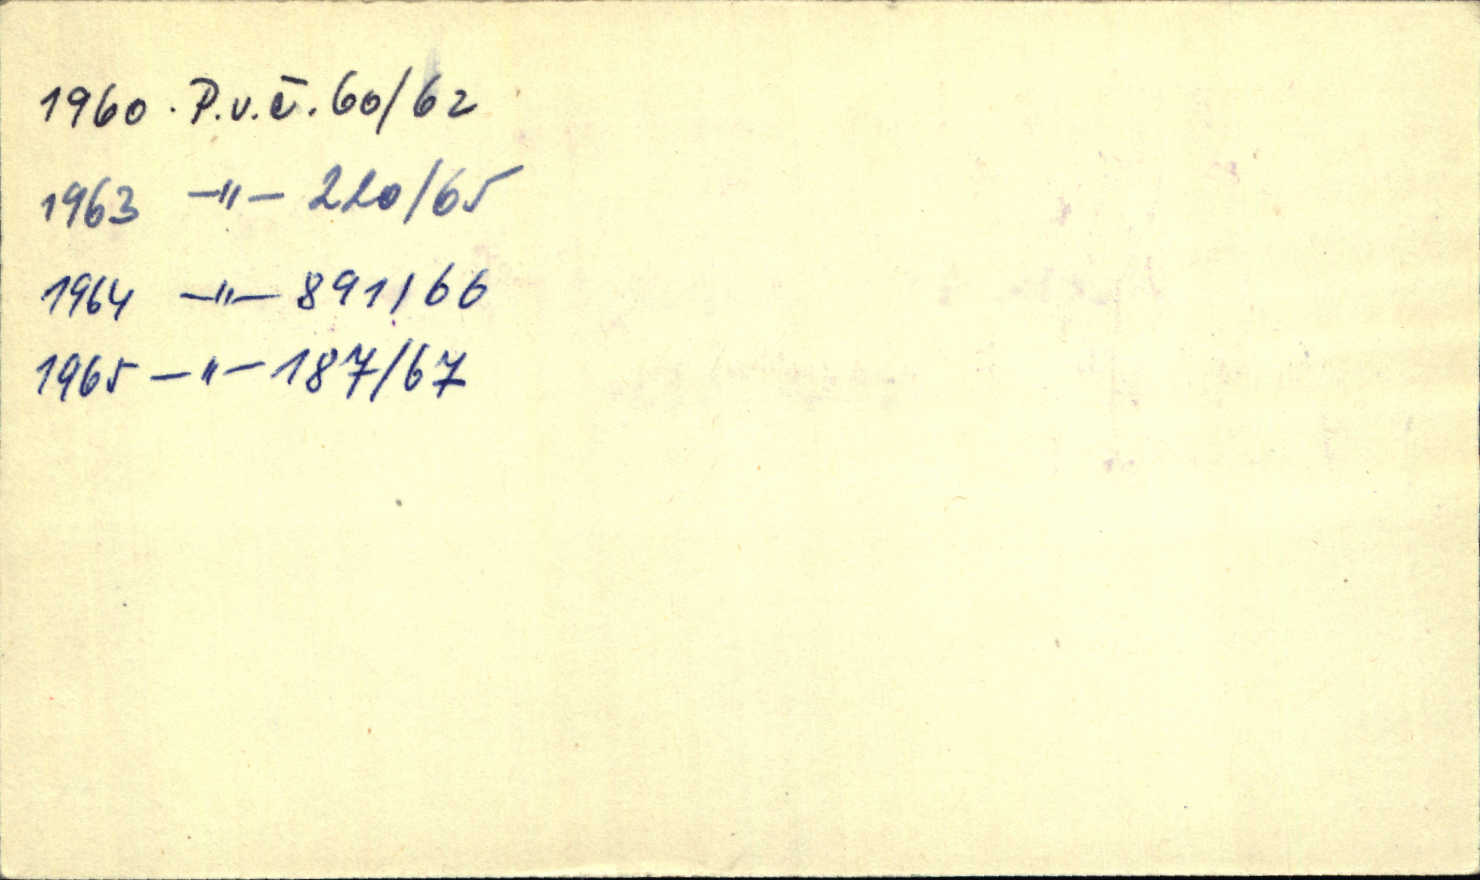 1960. P.v.č. 60/62
1963 —"— 220/65
1964 —"— 891/66
1965 —"— 187/67